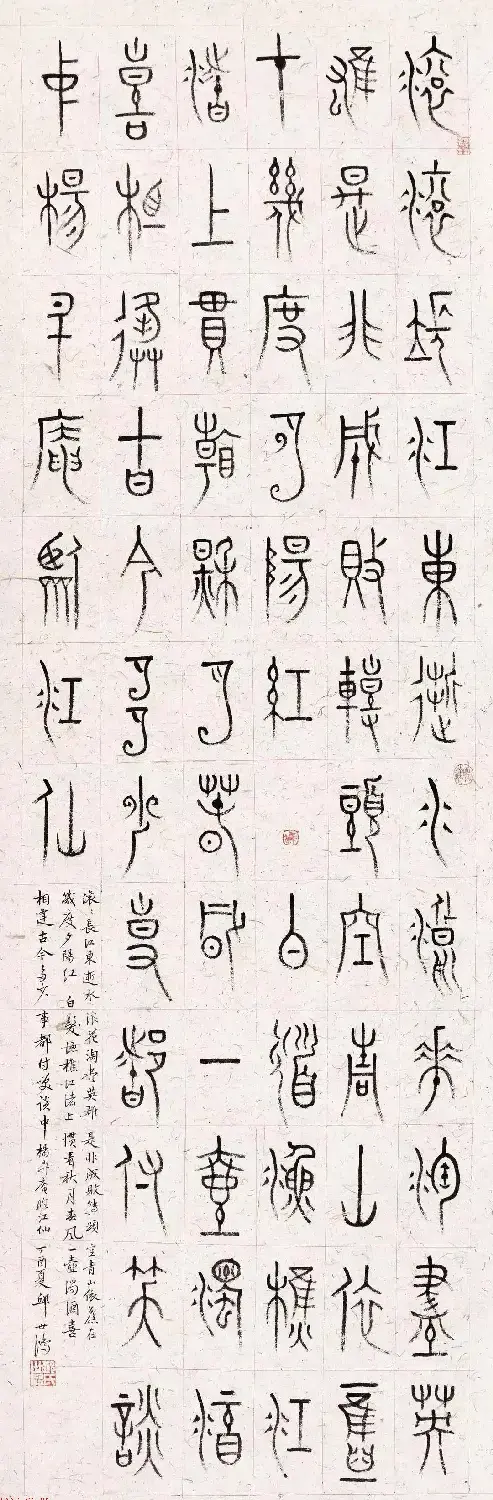 滾滾長江東逝水浪花淘盡英
雄是非成敗轉頭空青山依舊
在幾度夕陽紅白髮漁樵江
渚上貫看秋月春風一壺濁酒
喜相逢古今多少事都付笑談
中楊升庵臨江仙
滾滾長江東逝水浪花淘盡英雄是非成敗轉頭空青山依舊在
幾度夕陽紅白髮漁樵江渚上慣看秋月春風一壺濁酒喜
相逢古今多少事都付笑談中楊升庵臨江仙丁酉夏邱世鴻